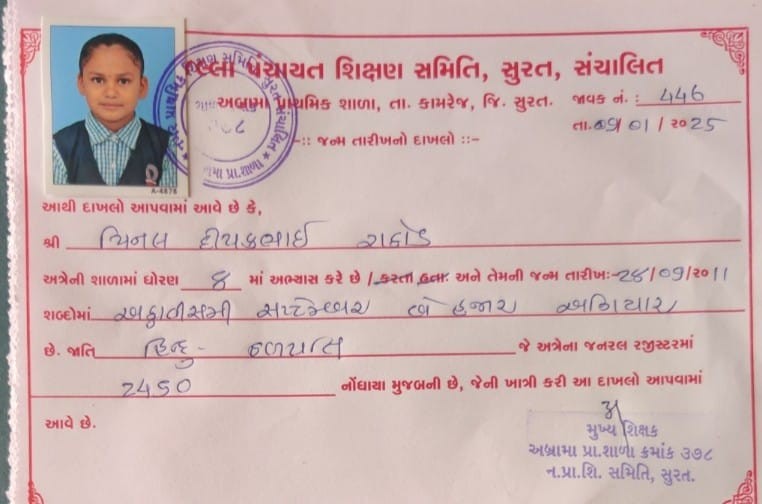 જિલ્લા પંચાયત શિક્ષણ સમિતિ, સુરત, સંચાલિત
અબ્રામા પ્રાથમિક શાળા, તા. કામરેજ, જિ. સુરત. જાવક નં. : 446
તા. 09/01/૨૦25
-:: જન્મ તારીખનો દાખલો ::-
A-4878
આથી દાખલો આપવામાં આવે છે કે,
શ્રી દીપકભાઈ રાઠોડ
અત્રેની શાળામાં ધોરણ 8 માં અભ્યાસ કરે છે / કરતા હતા. અને તેમની જન્મ તારીખ:-28/09/૨૦11
શબ્દોમાં અઠ્ઠાવીસમી સપ્ટેમ્બર બે હજાર અગિયાર
છે. જાતિ હિન્દુ - હળપતિ જે અત્રેના જનરલ રજીસ્ટરમાં
2450 નોંધાયા મુજબની છે, જેની ખાત્રી કરી આ દાખલો આપવામાં
આવે છે.
મુખ્ય શિક્ષક
અબ્રામા પ્રા.શાળા ક્રમાંક ૩૭૮
ન.પ્રા.શિ. સમિતિ, સુરત.